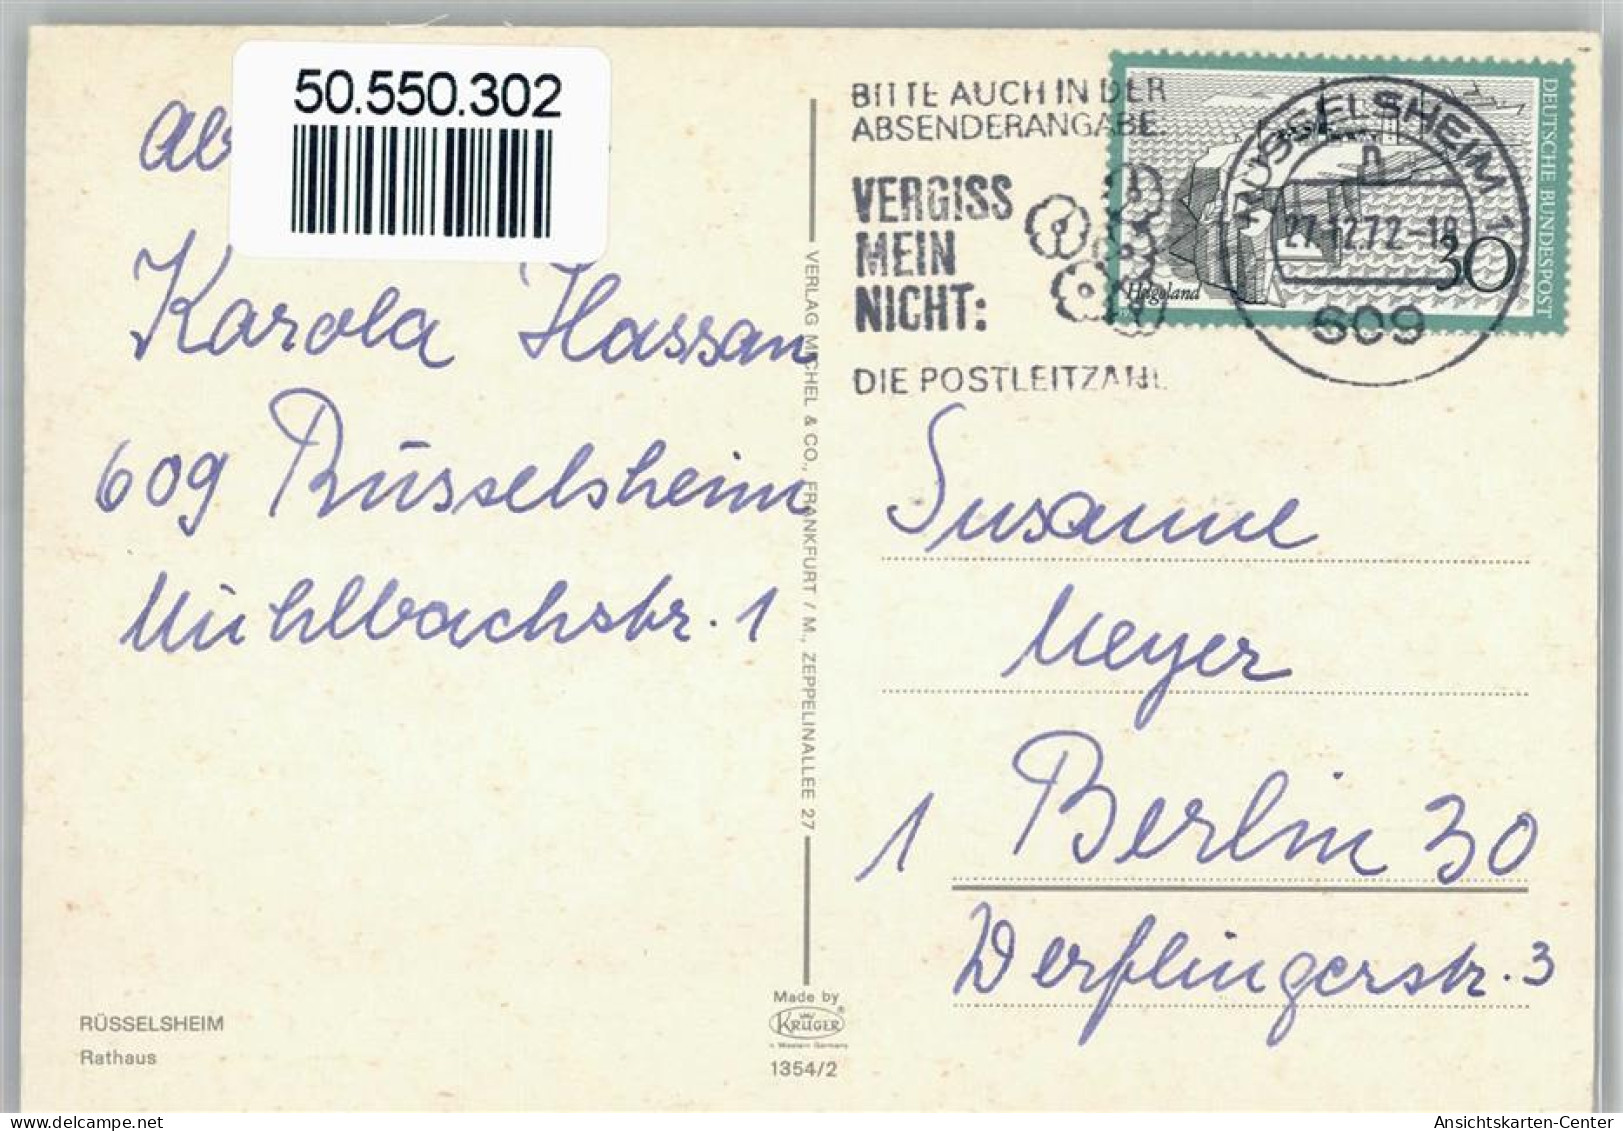 50.550.302
Karola Hassan
609 Rüsselsheim
Mühlbachstr. 1
RÜSSELSHEIM
Rathaus
VERLAG MICHEL & CO., FRANKFURT / M., ZEPPELINALLEE 27
Made by
KRÜGER
1354/2
BITTE AUCH IN DER
ABSENDERANGABE.
VERGISS
MEIN
NICHT:
DIE POSTLEITZAHL
Helgoland
30
DEUTSCHE BUNDESPOST
RÜSSELSHEIM 1
n
27.12.72-18
609
Susanne
Meyer
1 Berlin 30
Derflingerstr. 3
Ansichtskarten-Center